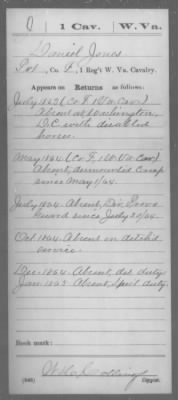 J | 1 Cav. | W. Va.
Daniel Jones
Pvt, Co. F, 1 Reg't W. Va. Cavalry.
Appears on Returns as follows:
July 1863 (Co F 1 Va. Cav.)
Absent at Washington,
D.C. with disabled
horses.
May 1864 (Co F. 1 W. Va. Cav)
Absent, dismounted Camp
since May 1/64.
July 1864. Absent, Div. Provo
Guard since July 20/64.
Oct. 1864. Absent on detch'd
service.
Dec. 1864. Absent, det. duty
Jan. 1865. Absent, Spcl. duty
Book mark:
Copyist.